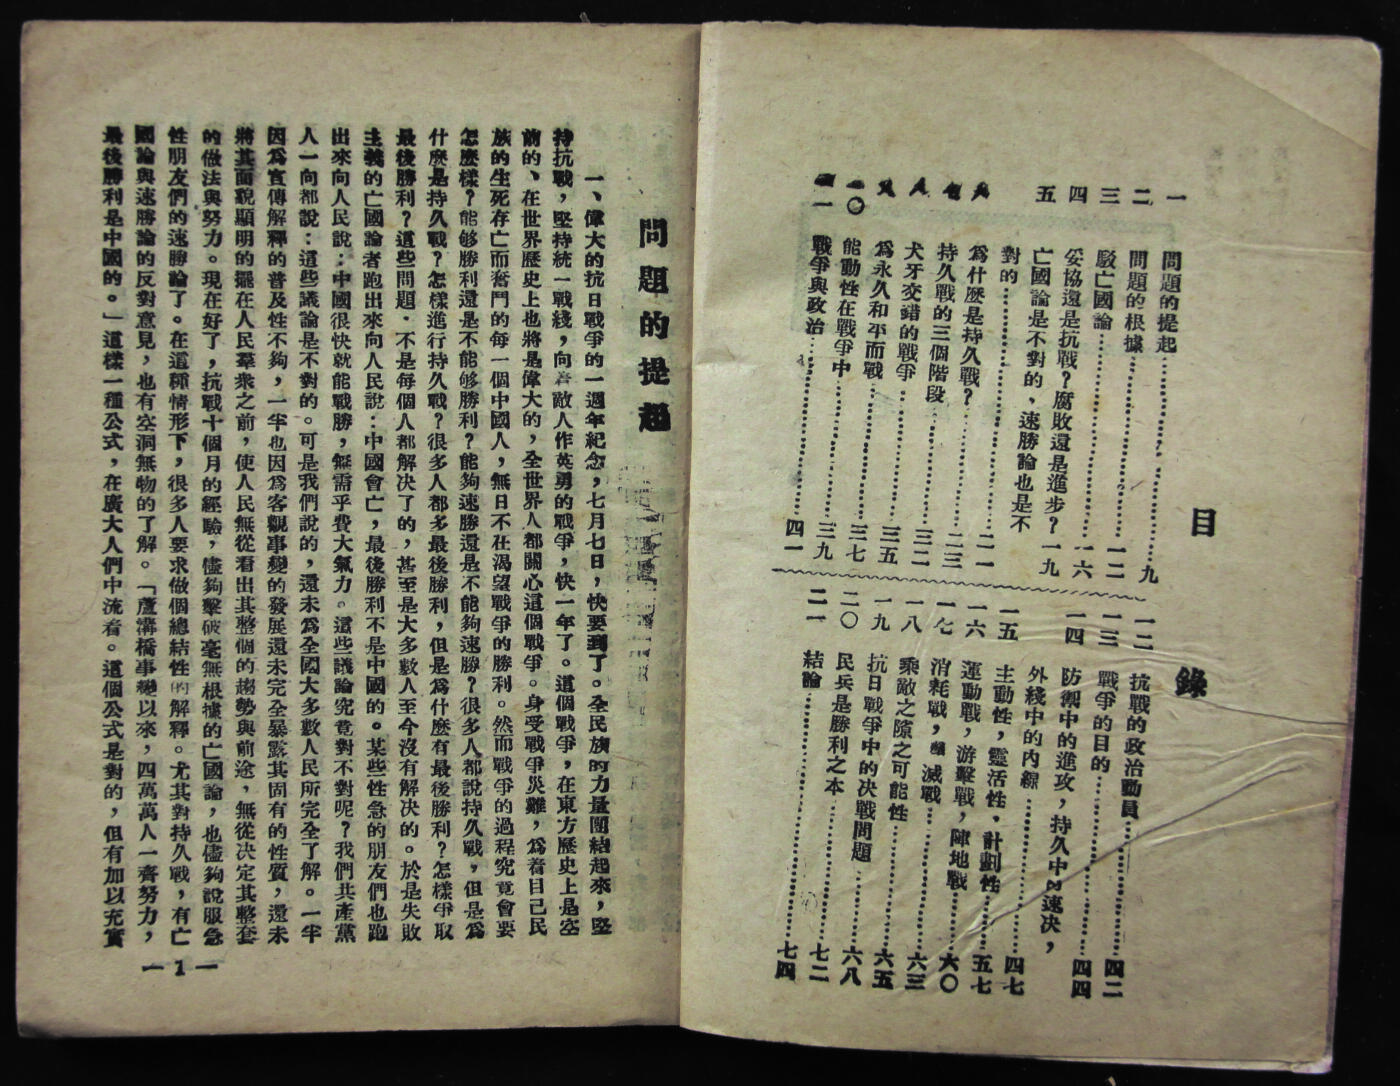 目錄
一 問題的提起……九
二 問題的根據……一二
三 駁亡國論……一六
四 妥協還是抗戰？腐敗還是進步？一九
五 亡國論是不對的、速勝論也是不
對的……二一
六 爲什麽是持久戰？……二三
七 持久戰的三個階段……
八 犬牙交錯的戰爭……三二
爲永久和平而戰……三五
一〇 能動性在戰爭中……三七
一一 戰爭與政治……三九
四一
一二 抗戰的政治動員……四二
一三 戰爭的目的……四四
一四 防禦中的進攻，持久中的速决，
外綫中的內線……四七
一五 主動性，靈活性、計劃性……五七
一六 運動戰，游擊戰，陣地戰……六〇
一七 消耗戰，殲滅戰……六三
一八 乘敵之隙之可能性……六五
一九 抗日戰爭中的决戰問題……六八
二〇 民兵是勝利之本……七二
二一 結論……七四
問題的提起
一、偉大的抗日戰爭的一週年紀念，七月七日，快要到了。全民族的力量團結起來，堅
持抗戰，堅持統一戰綫，向着敵人作英勇的戰爭，快一年了。這個戰爭，在東方歷史上是空
前的、在世界歷史上也將是偉大的，全世界人都關心這個戰爭。身受戰爭災難，爲着自己民
族的生死存亡而奮鬥的每一個中國人，無日不在渴望戰爭的勝利。然而戰爭的過程究竟會要
怎麽樣？能够勝利還是不能够勝利？能夠速勝還是不能夠速勝？很多人都說持久戰，但是爲
什麽是持久戰？怎樣進行持久戰？很多人都多最後勝利，但是爲什麽有最後勝利？怎樣爭取
最後勝利？這些問題．不是每個人都解决了的，甚至是大多數人至今沒有解决的。於是失敗
主義的亡國論者跑出來向人民說：中國會亡，最後勝利不是中國的。某些性急的朋友們也跑
出來向人民說：中國很快就能戰勝，無需乎費大氣力。這些議論究竟對不對呢？我們共產黨
人一向都說：這些議論是不對的。可是我們說的，還未爲全國大多數人民所完全了解。一半
因爲宣傳解釋的普及性不夠，一半也因爲客觀事變的發展還未完全暴露其固有的性質，還未
將其面貌顯明的擺在人民羣衆之前，使人民無從看出其整個的趨勢與前途，無從决定其整套
的做法與努力。現在好了，抗戰十個月的經驗，儘夠擊破毫無根據的亡國論，也儘夠說服急
性朋友們的速勝論了。在這種情形下，很多人要求做個總結性的解釋。尤其對持久戰，有亡
國論與速勝論的反對意見，也有空洞無物的了解。「蘆溝橋事變以來，四萬萬人一齊努力，
最後勝利是中國的。」這樣一種公式，在廣大人們中流着。這個公式是對的，但有加以充實
一1一